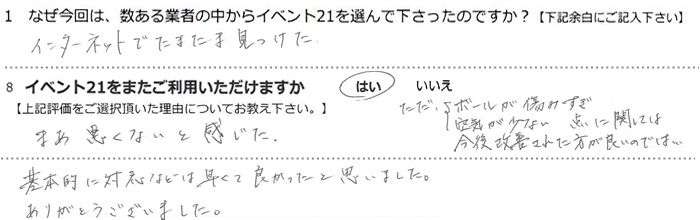 1 なぜ今回は、数ある業者の中からイベント21を選んで下さったのですか？【下記余白にご記入下さい】
インターネットでたまたま見つけた.
8 イベント21をまたご利用いただけますか はい いいえ
【上記評価をご選択頂いた理由についてお教え下さい。】
まあ悪くないと感じた.
ただ、ボールが傷みすぎ
空気が少ない 点に関しては
今後改善された方が良いのでは…
基本的に対応などは早くて良かったと思いました。
ありがとうございました。